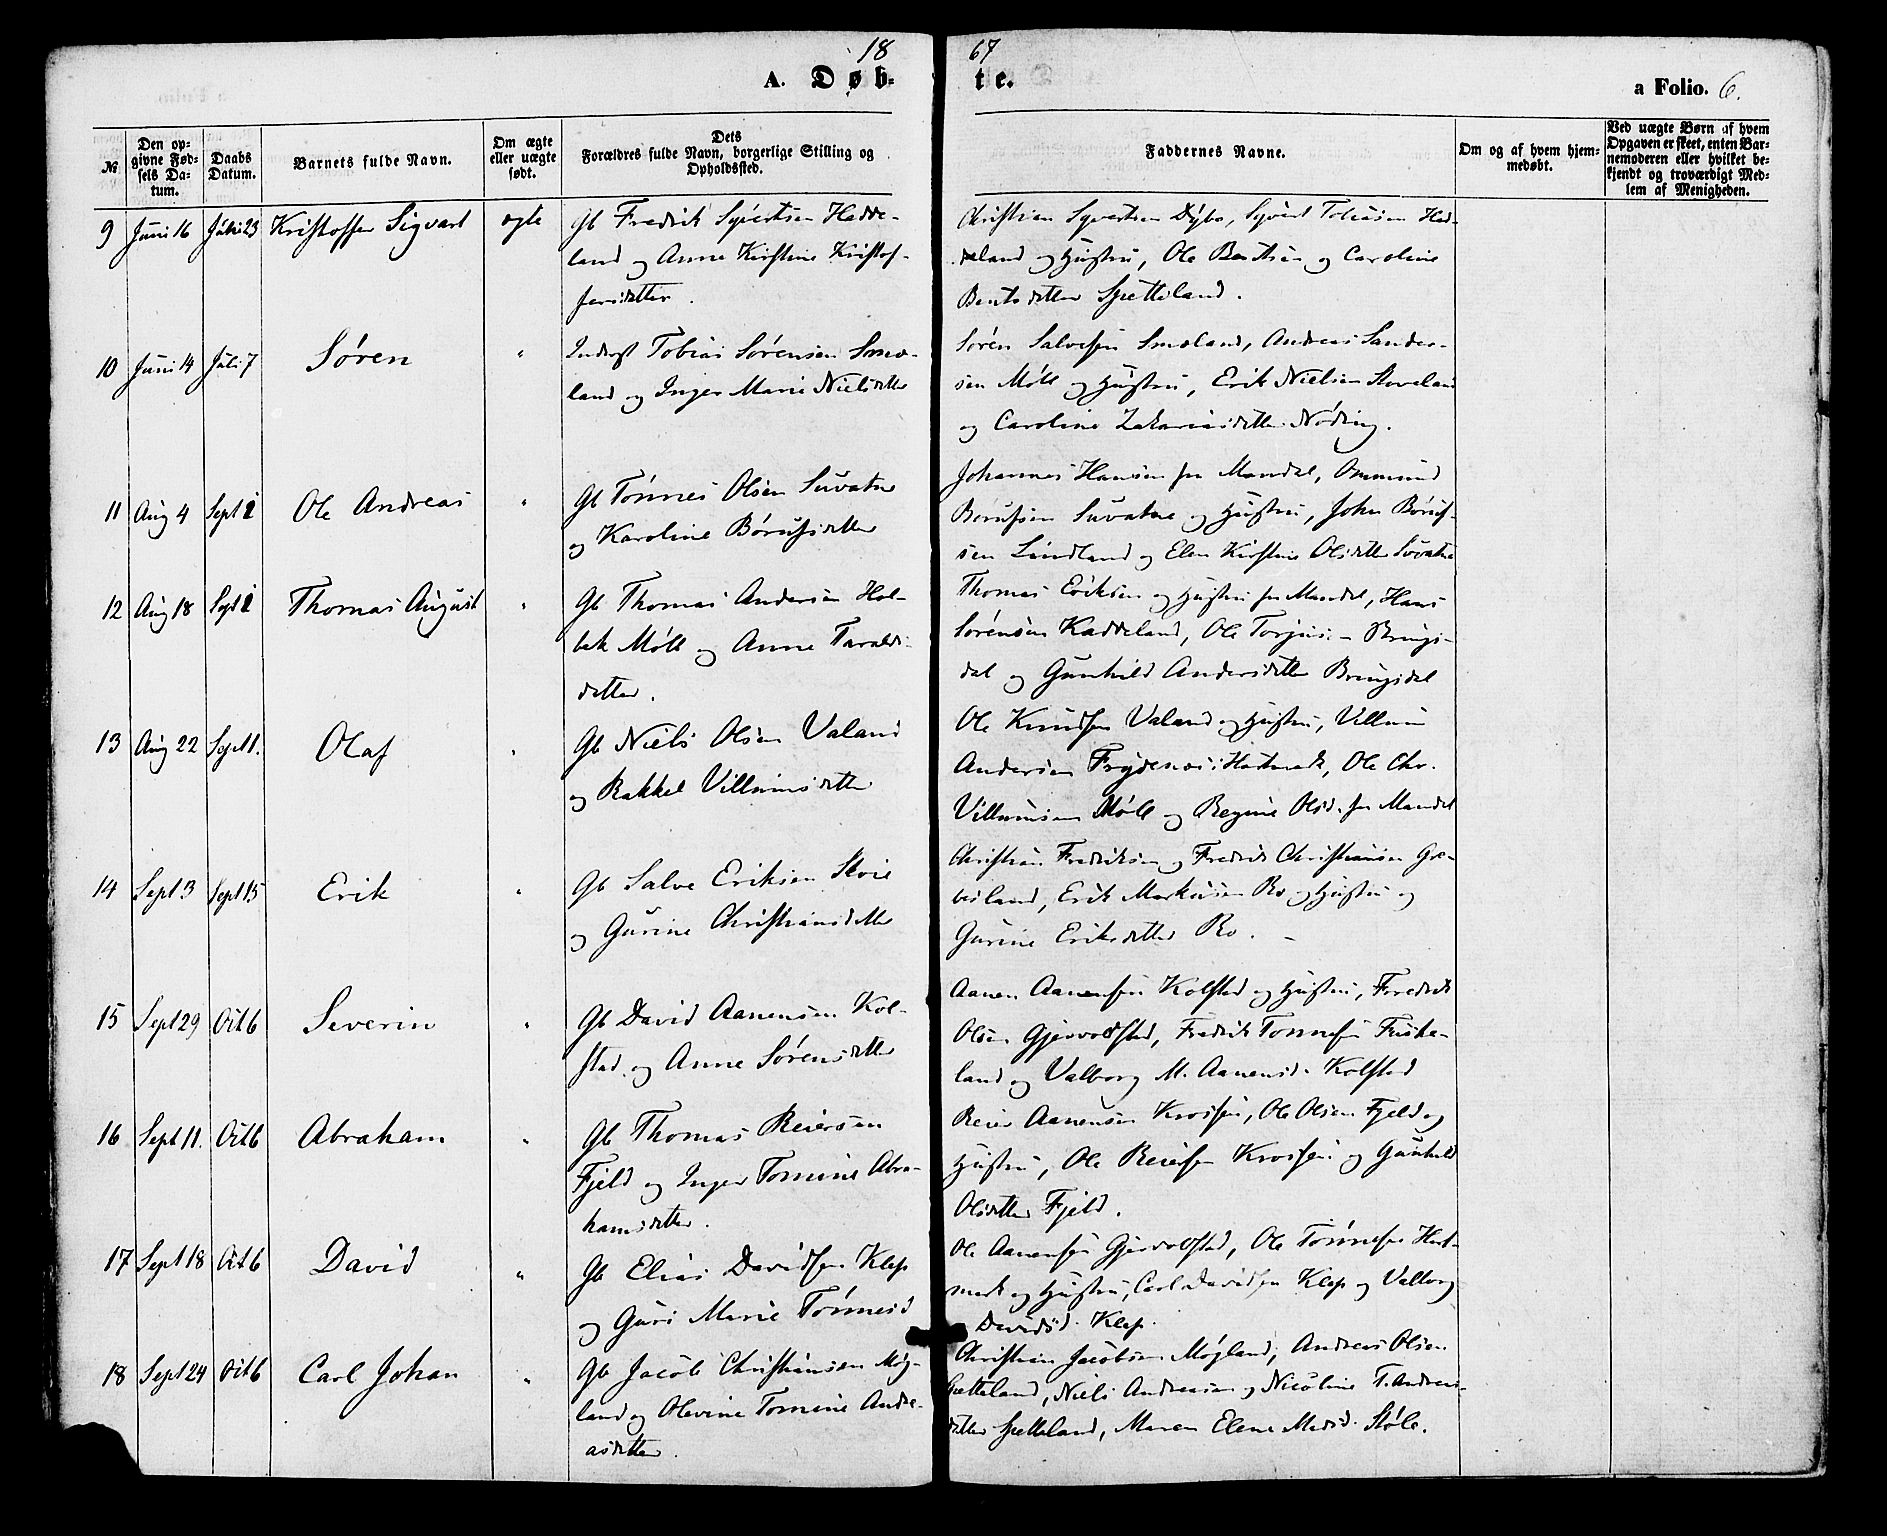 18 67
A. Døb- te. a Folio. 6.
№ Den opgivne Fødsels Datum. Daabs Datum. Barnets fulde Navn. Om ægte eller uægte født. Dets Forældres fulde Navn, borgerlige Stilling og Opholdssted. Faddernes Navne. Om og af hvem hjemmedøbt. Ved uægte Børn af hvem Opgaven er skeet, enten Barnemoderen eller hvilket bekjendt og troværdigt Medlem af Menigheden.
9 Juni 16 Juni 23 Kristoffer Sigvart ægte Gb Fredrik Syvertsen Hadde-
land og Anne Kirstine Kristof-
fersdatter.
Christian Syvertsen Dybo, Syvert Tobiasen Had-
deland og Hustru, Ole Bentsen og Caroline
Bentsdatter Spetteland.
10 Juni 14 Juli 7 Søren " Inderst Tobias Sørensen Smaa-
land og Inger Marie Nielsdatter
Søren Salvesen Smaaland, Andreas Sander-
sen Møll og Hustru, Erik Nielsen Stoveland
og Caroline Zakariasdatter Nøding.
11 Aug 4 Sept 1 Ole Andreas " Gb Tønnes Olsen Suvatne
og Karoline Børufsdatter
Johannes Hansen fra Mandal, Ommund
Børufsen Suvatne og Hustru, John Børuf-
sen Lindland og Elen Kirstine Olsdatter Suvatne
12 Aug 18 Sept 1 Thomas August " Gb Thomas Andersen Hol-
bek Møll og Anne Taralds-
datter.
Thomas Eriksen og Hustru fra Mandal, Hans
Sørensen Kaddeland, Ole Torjus. - Brings-
dal og Gunhild Andersdatter Bringsdal
13 Aug 22 Sept 1. Olaf " Gb Niels Olsen Valand
og Rakkel Villumsdatter
Ole Knudsen Valand og Hustru, Villum
Andersen Frydenæs i Hartmark, Ole Chr.
Villumsen Møll og Regine Olsd. fra Mandal
14 Sept 3 Sept 15 Erik " Gb Salve Eriksen Stoie
og Gurine Christiansdatter
Christian Fredriksen og Fredrik Christiansen Gre-
vesland, Erik Markusen Ro og Hustru og
Gurine Eriksdatter Ro. -
15 Sept 29 Oct 6 Severin " Gb David Aanensen Kol-
stad og Anne Sørensdatter
Aanen Aanensen Kolstad og Hustru, Fredrik
Olsen Gjervoldstad, Fredrik Tønnesen Fuske-
land og Valborg M. Aanensd. Kolstad
16 Sept 11. Oct 6 Abraham " Gb Thomas Reiersen
Fjeld og Inger Tomine Abra-
hamsdatter.
Reier Aanensen Krossen, Ole Olsen Fjeld og
Hustru, Ole Reiersen Krossen og Gunhild
Olsdatter Fjeld.
17 Sept 18 Oct 6 David " Gb Elias Davidsen Klep
og Guri Marie Tønnesd
Ole Aanensen Gjervoldstad, Ole Tønnesen Hart-
mark og Hustru, Carl Davidsen Klep og Valborg
Davidsd. Klep.
18 Sept 24 Oct 6 Carl Johan " Gb Jacob Christiansen Møg-
land og Olevine Tomine Andre-
asdatter.
Christian Jacobsen Møgland, Andreas Olsen
Spetteland, Niels Andreasen og Nicoline T. Andreas-
datter Spetteland, Maren Elene Madsd. Støle.